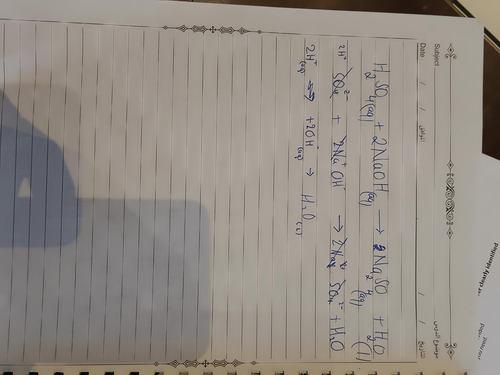 Subject
Date / /
H₂SO₄(aq) + 2NaOH(aq) → Na₂SO₄(aq) + H₂O(l)
2H⁺ SO₄²⁻ + 2Na⁺ OH⁻ → 2Na⁺ SO₄²⁻ + H₂O
2H⁺(aq) + 2OH⁻(aq) → H₂O(l)
er clearly identified